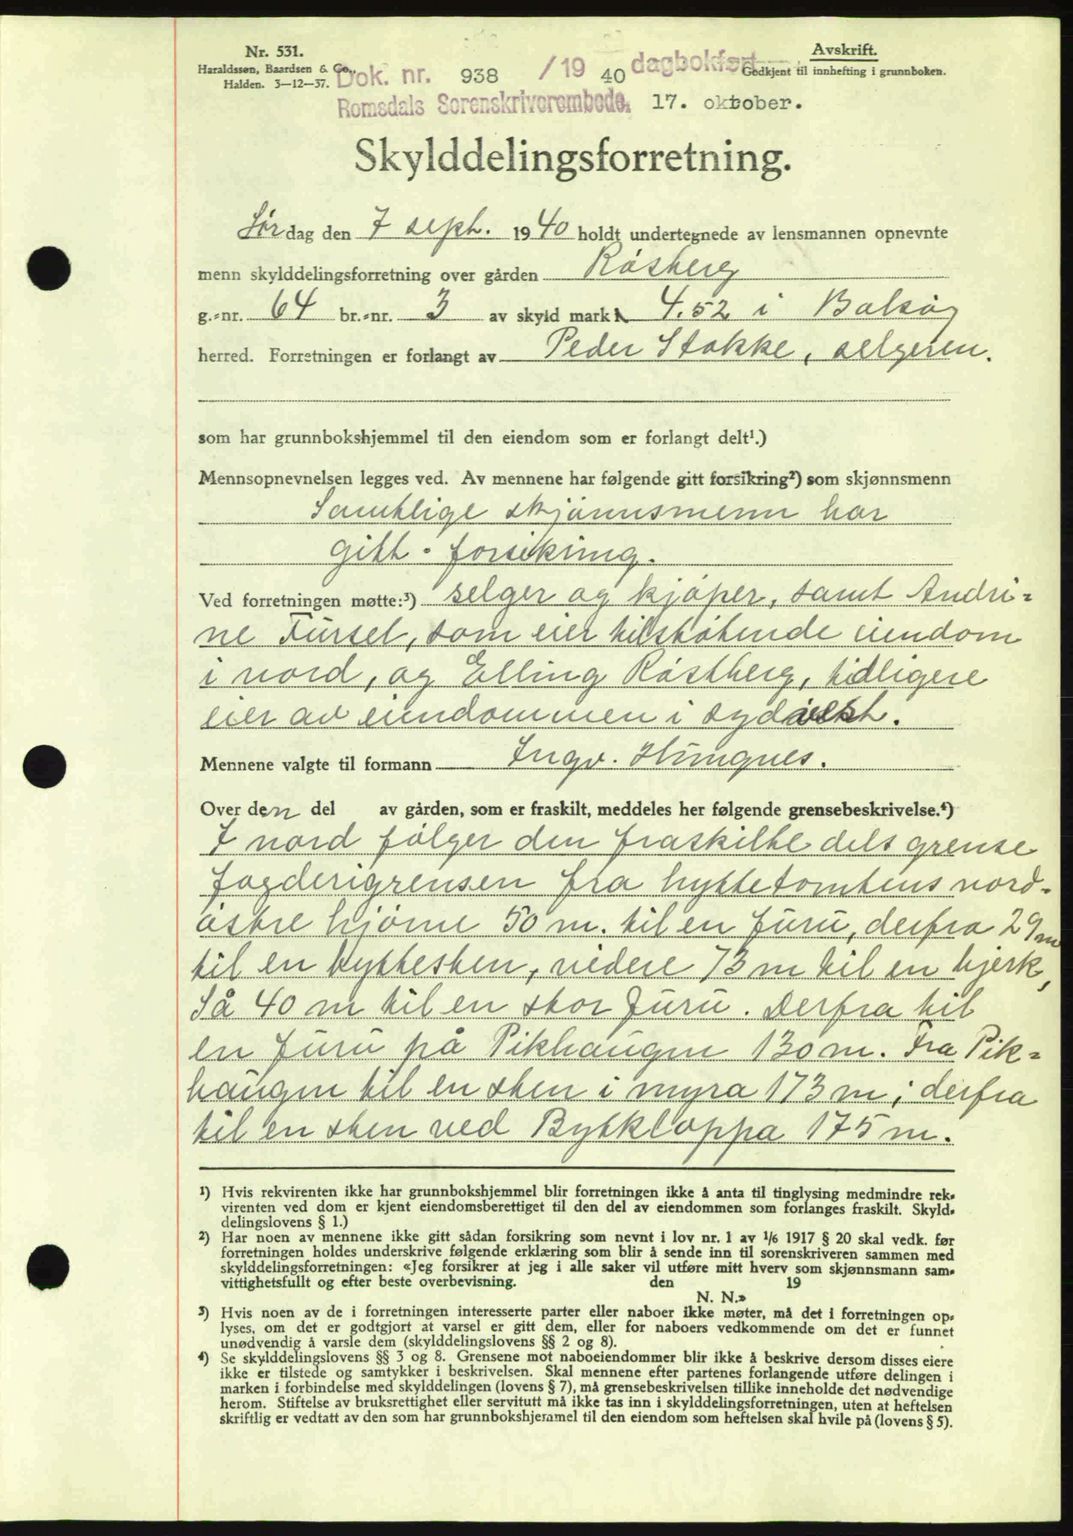 Nr. 531.
Haraldssøn, Baardsen & Co.,
Halden. 3—12—37.
Avskrift.
Godkjent til innhefting i grunnboken.
Dok. nr. 938 /19 40 dagbokført
Romsdals Sorenskriverembede, 17. oktober.
Skylddelingsforretning.
Lørdag den 7 sept. 1940 holdt undertegnede av lensmannen opnevnte
menn skylddelingsforretning over gården Røsberg
g.-nr. 64 br.-nr. 3 av skyld mark 4.52 i Bolsøy
herred. Forretningen er forlangt av Peder Stokke, selgeren.
som har grunnbokshjemmel til den eiendom som er forlangt delt¹.)
Mennsopnevnelsen legges ved. Av mennene har følgende gitt forsikring²) som skjønnsmenn
Samtlige skjønnsmenn har
gitt forsikring.
Ved forretningen møtte:³) selger og kjøper, samt Andri-
ne Furset, som eier tilstøtende eiendom
i nord, og Elling Røstberg, tidligere
eier av eiendommen i sydvest.
Mennene valgte til formann Ingv. Humgnes.
Over den del av gården, som er fraskilt, meddeles her følgende grensebeskrivelse.⁴)
I nord følger den fraskilte dels grense
fogderigrensen fra hyttetomtens nord-
østre hjørne 50 m. til en furu, derfra 29 m
til en byttesten, videre 73 m til en bjerk,
så 40 m til en stor furu. Derfra til
en furu på Pikhaugen 130 m. Fra Pik-
haugen til en sten i myra 173 m; derfra
til en sten ved Bytkloppa 175 m.
¹) Hvis rekvirenten ikke har grunnbokshjemmel blir forretningen ikke å anta til tinglysing medmindre rek-
virenten ved dom er kjent eiendomsberettiget til den del av eiendommen som forlanges fraskilt. Skyld-
delingslovens § 1.)
²) Har noen av mennene ikke gitt sådan forsikring som nevnt i lov nr. 1 av 1/6 1917 § 20 skal vedk. før
forretningen holdes underskrive følgende erklæring som blir å sende inn til sorenskriveren sammen med
skylddelingsforretningen: «Jeg forsikrer at jeg i alle saker vil utføre mitt hverv som skjønnsmann sam-
vittighetsfullt og efter beste overbevisning. den 19
N. N.»
³) Hvis noen av de i forretningen interesserte parter eller naboer ikke møter, må det i forretningen op-
lyses, om det er godtgjort at varsel er gitt dem, eller for naboers vedkommende om det er funnet
unødvendig å varsle dem (skylddelingslovens §§ 2 og 8).
⁴) Se skylddelingslovens §§ 3 og 8. Grensene mot naboeiendommer blir ikke å beskrive dersom disses eiere
ikke er tilstede og samtykker i beskrivelsen. Skal mennene efter partenes forlangende utføre delingen i
marken i forbindelse med skylddelingen (lovens § 7), må grensebeskrivelsen tillike inneholde det nødvendige
herom. Stiftelse av bruksrettighet eller servitutt må ikke tas inn i skylddelingsforretningen, uten at heftelsen
skriftlig er vedtatt av den som har grunnbokshjemmel til den eiendom som heftelsen skal hvile på (lovens § 5).